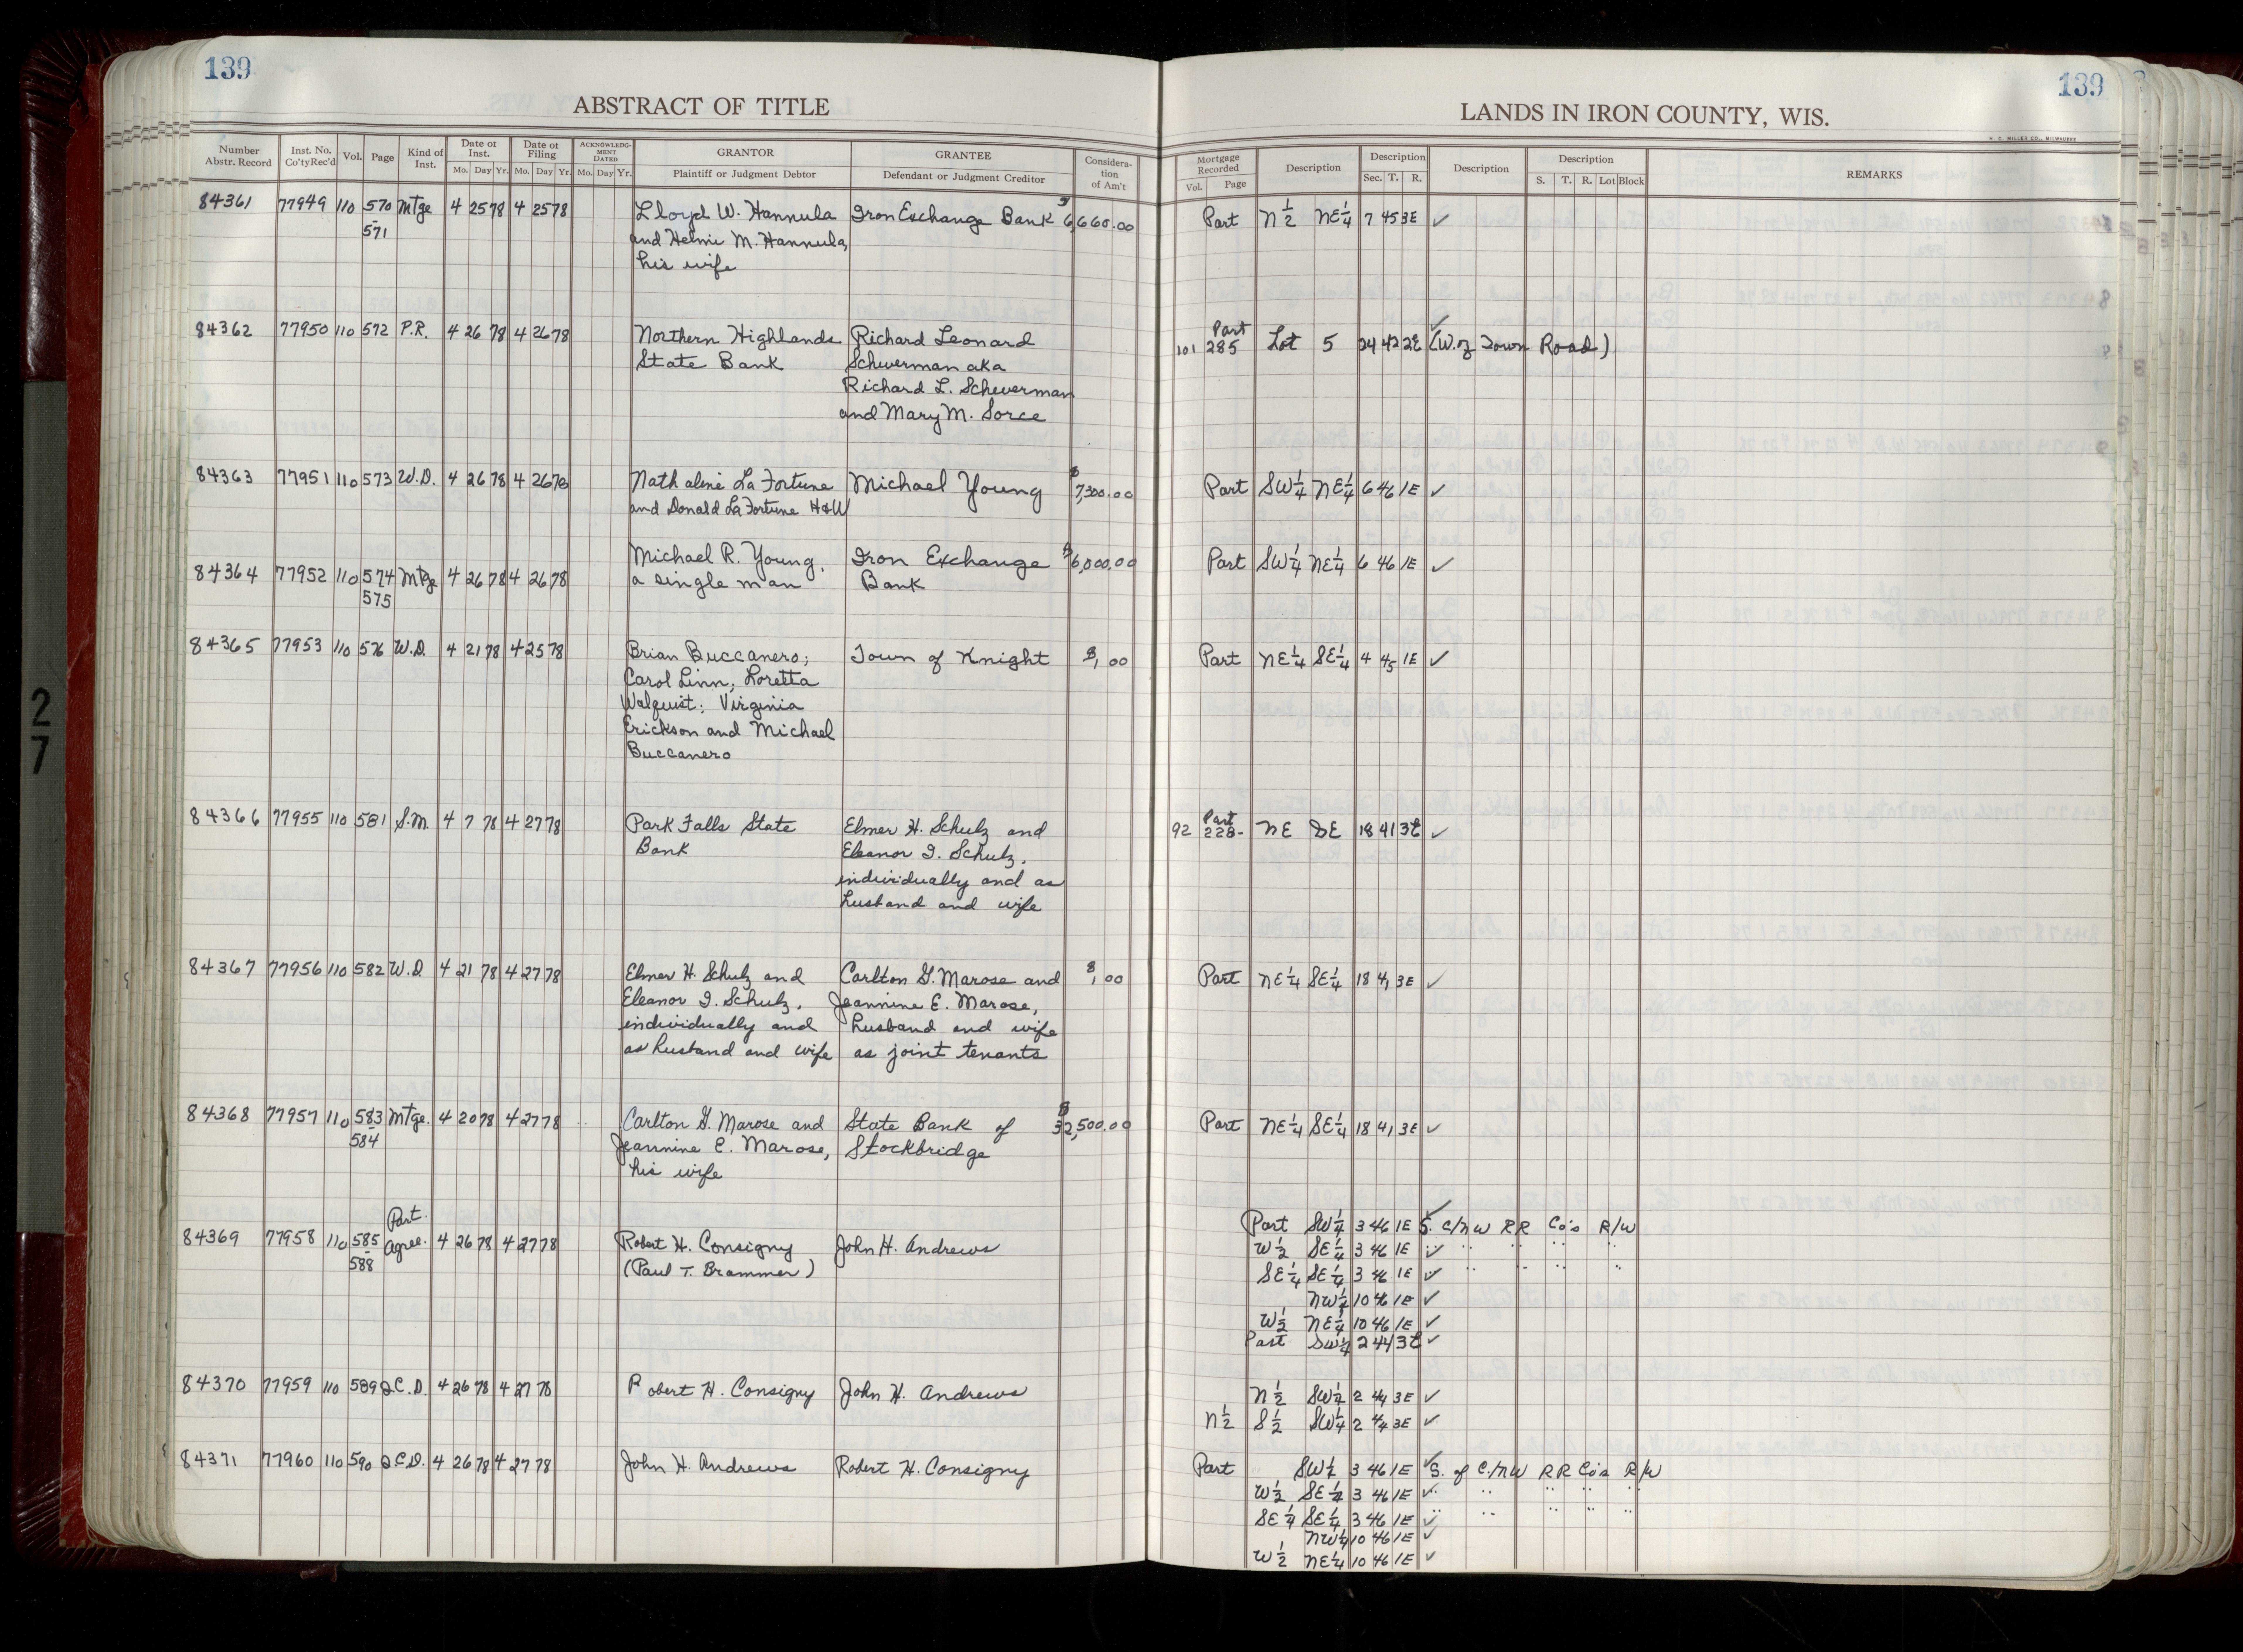 139
ABSTRACT OF TITLE
Number Abstr. Record Inst. No. Co'tyRec'd Vol. Page Kind of Inst. Date of Inst. Mo. Day Yr. Date of Filing Mo. Day Yr. ACKNOWLEDGMENT DATED Mo. Day Yr. GRANTOR Plaintiff or Judgment Debtor GRANTEE Defendant or Judgment Creditor Consideration of Am't
84361 77949 110 570 Mtge 4 25 78 4 25 78 Lloyd W. Hannula Iron Exchange Bank $6,660.00
571 and Helmi M. Hannula,
his wife
84362 77950 110 572 P.R. 4 26 78 4 26 78 Northern Highlands Richard Leonard
State Bank Scheuerman aka
Richard L. Scheuerman
and Mary M. Sorce
84363 77951 110 573 W.D. 4 26 78 4 26 78 Nathaline La Fortune Michael Young $7,300.00
and Donald La Fortune H&W
Michael R. Young, Iron Exchange $6,000.00
84364 77952 110 574 Mtge 4 26 78 4 26 78 a single man Bank
575
84365 77953 110 576 W.D. 4 21 78 4 25 78 Brian Buccanero; Town of Knight $1.00
Carol Linn; Loretta
Walquist; Virginia
Erickson and Michael
Buccanero
84366 77955 110 581 S.M. 4 7 78 4 27 78 Park Falls State Elmer H. Schulz and
Bank Eleanor I. Schulz,
individually and as
husband and wife
84367 77956 110 582 W.D 4 21 78 4 27 78 Elmer H. Schulz and Carlton G. Marose and $1.00
Eleanor I. Schulz, Jeannine E. Marose,
individually and husband and wife
as husband and wife as joint tenants
84368 77957 110 583 Mtge. 4 20 78 4 27 78 Carlton G. Marose and State Bank of $32,500.00
584 Jeannine E. Marose, Stockbridge
his wife
Part.
84369 77958 110 585 Agree. 4 26 78 4 27 78 Robert H. Consigny John H. Andrews
588 (Paul T. Brammer)
84370 77959 110 589 Q.C.D. 4 26 78 4 27 78 Robert H. Consigny John H. Andrews
84371 77960 110 590 Q.C.D. 4 26 78 4 27 78 John H. Andrews Robert H. Consigny
139
LANDS IN IRON COUNTY, WIS.
H. C. MILLER CO., MILWAUKEE
Mortgage Recorded Vol. Page Description Description Sec. T. R. Description Description S. T. R. Lot Block REMARKS
Part N½ NE¼ 7 45 3E ✓
Part ✓
101 285 Lot 5 24 42 2E (W. of Town Road)
Part SW¼ NE¼ 6 46 1E ✓
Part SW¼ NE¼ 6 46 1E ✓
Part NE¼ SE¼ 4 45 1E ✓
Part
92 228- NE SE 18 41 3E ✓
Part NE¼ SE¼ 18 41 3E ✓
Part NE¼ SE¼ 18 41 3E ✓
Part SW¼ 3 46 1E ✓ S. C/NW RR Co's R/W
W½ SE¼ 3 46 1E ✓ " " " "
SE¼ SE¼ 3 46 1E ✓ " " " "
NW¼ 10 46 1E ✓
W½ NE¼ 10 46 1E ✓
Part SW¼ 2 44 3E ✓
N½ SW¼ 2 44 3E ✓
N½ S½ SW¼ 2 44 3E ✓
Part SW¼ 3 46 1E ✓ S. of C/NW RR Co's R/W
W½ SE¼ 3 46 1E ✓ " " " "
SE¼ SE¼ 3 46 1E ✓ " " " "
NW¼ 10 46 1E ✓
W½ NE¼ 10 46 1E ✓
27